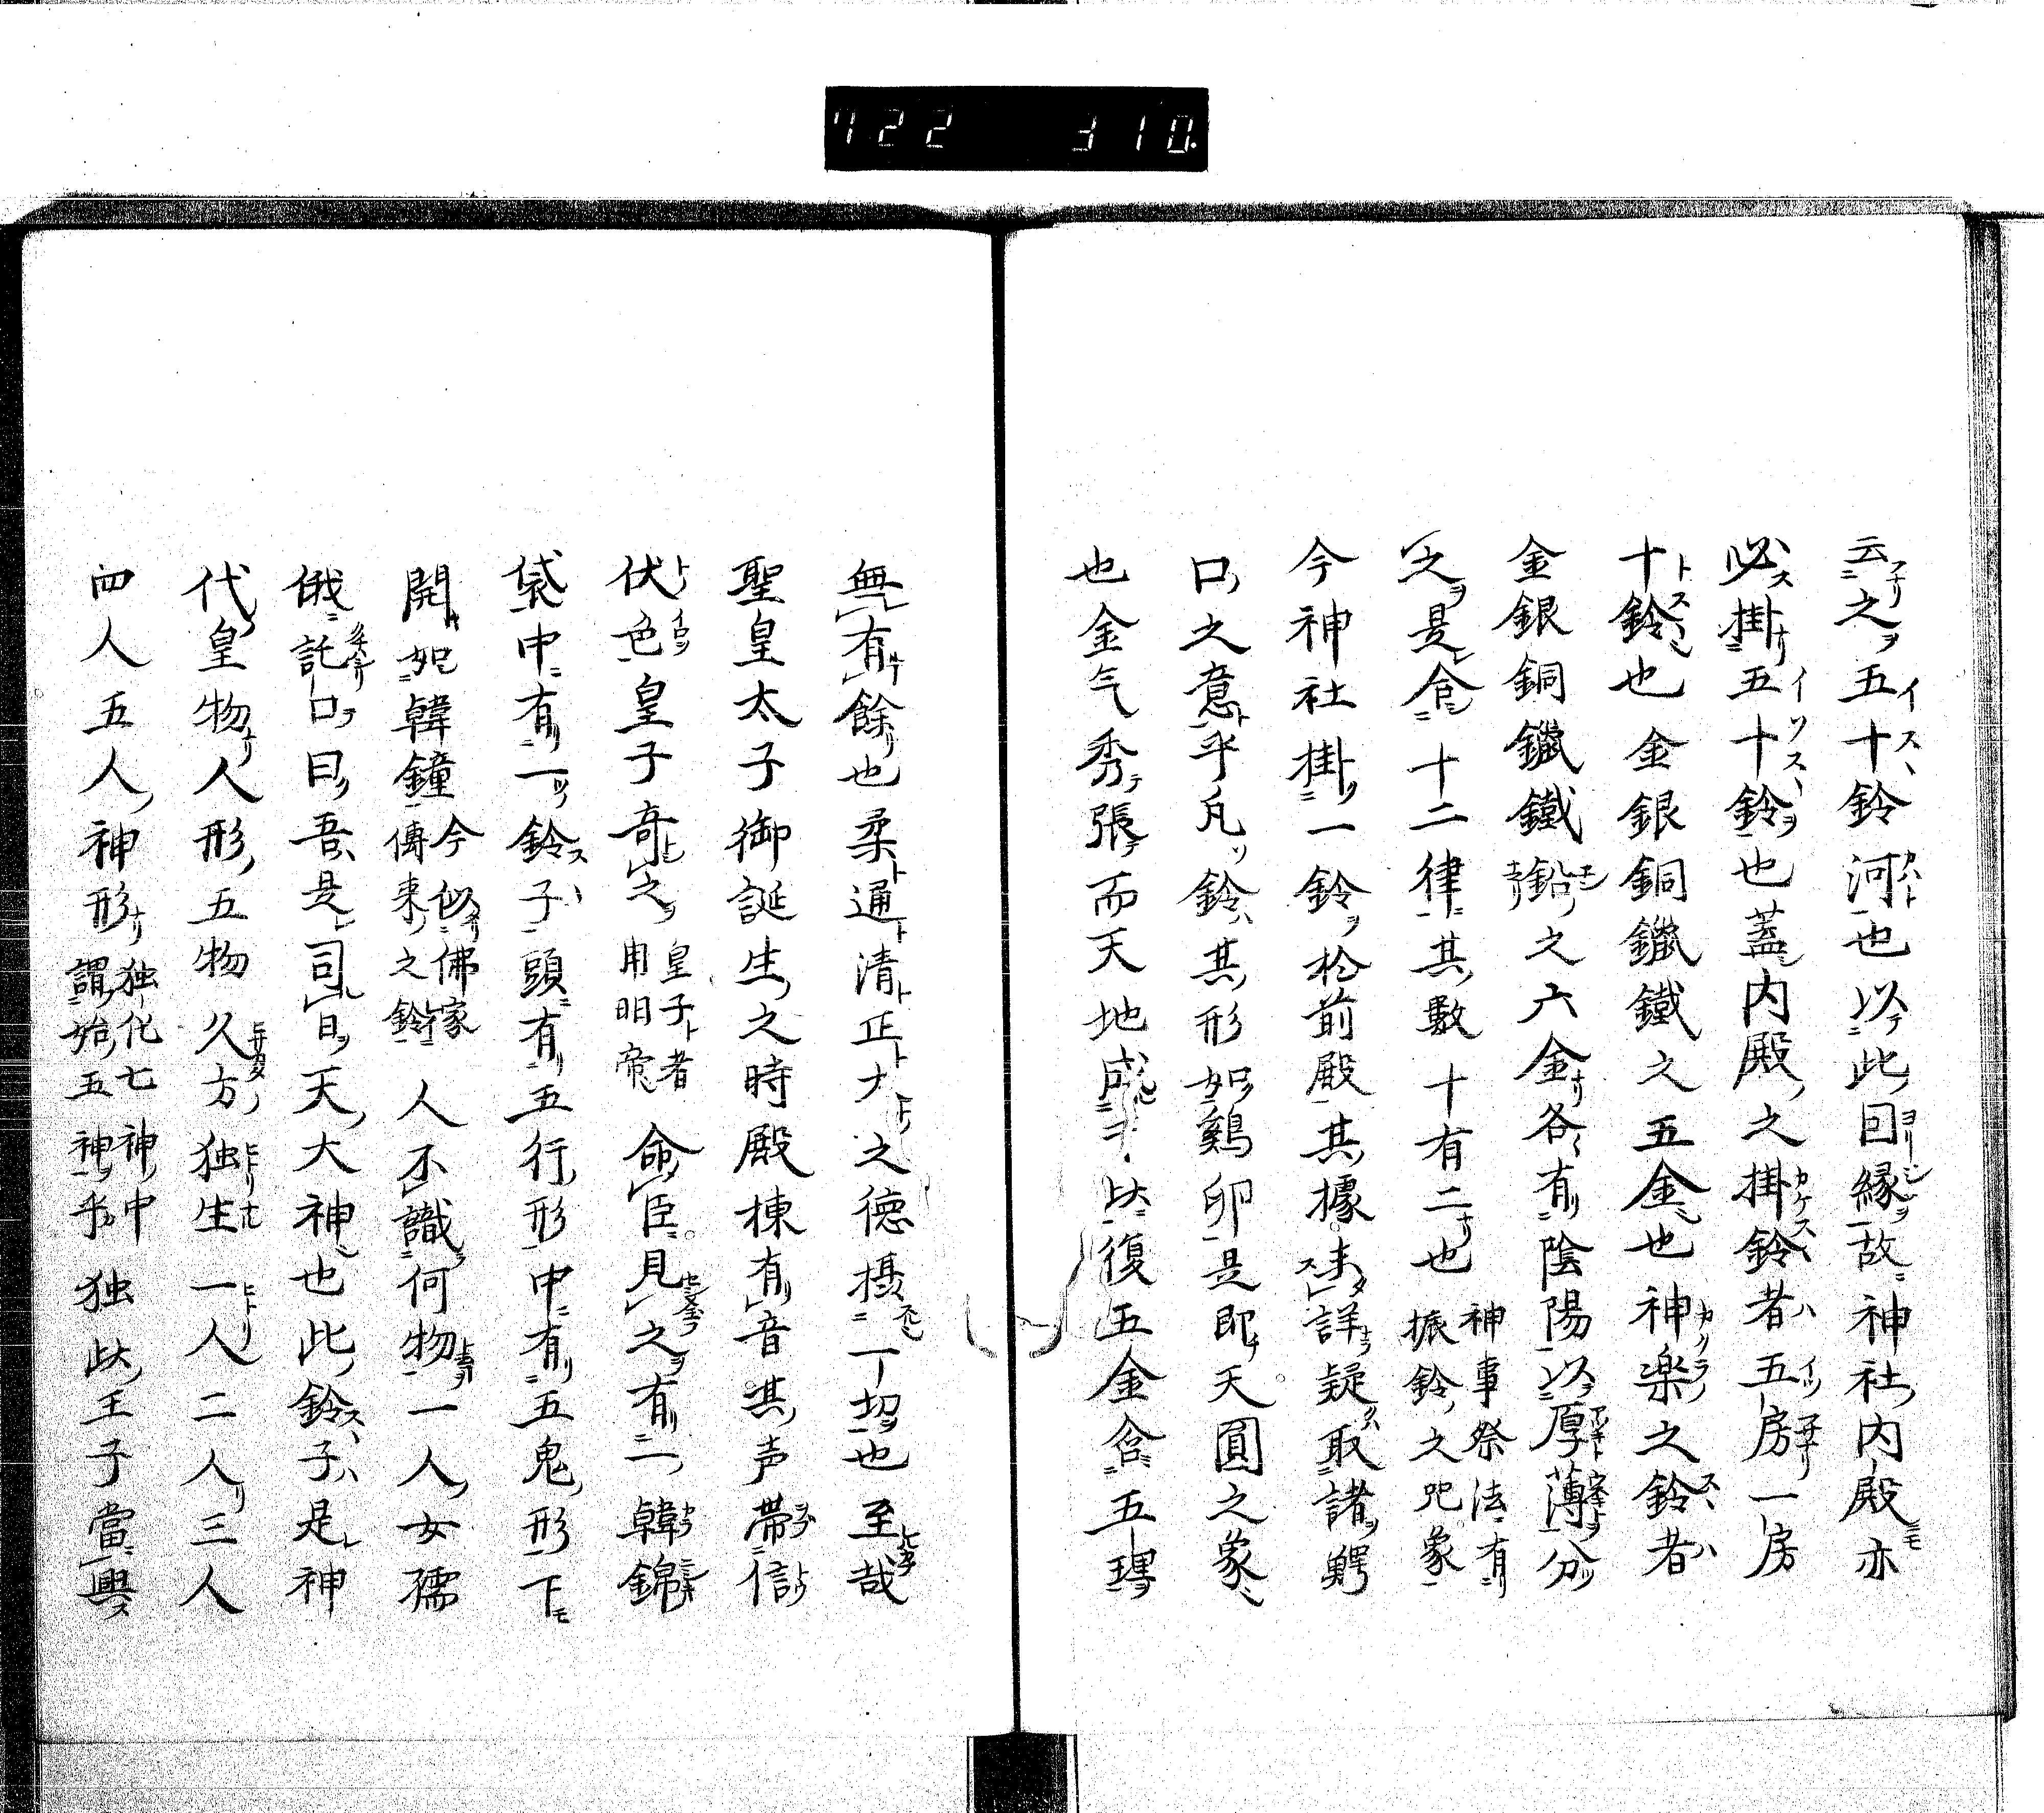 722 310.
云之五十鈴河也以此因縁故神社内殿亦
必掛五十鈴也蓋内殿之掛鈴者五房一房
十鈴也金銀銅鑞鐵之五金也神楽之鈴者
金銀銅鑞鐵鉛之六金各有陰陽以厚薄分
之是合十二律其數十有二也神事祭法有
振鈴之咒象
今神社掛一鈴於前殿其據未詳疑取諸鰐
口之意乎凡鈴其形如鷄卵是即天圓之象
也金气秀張而天地成 此復五金含五理
無有餘也柔通清正大之德撮一切也至哉
聖皇太子御誕生之時殿棟有音其声帯信
伏色皇子奇之皇子者
用明帝命臣見之有二韓錦
袋中有一鈴子頭有五行形中有五鬼形下
開如韓鐘今似佛家
傳来之鈴人不識何物一人女孺
俄託口曰吾是司日天大神也此鈴子是神
代皇物人形五物久方独生一人二人三人
四人五人神形独化七神中
謂始五神乎独此王子當興